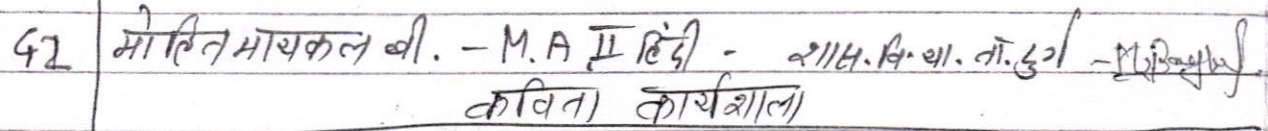 42 मोहित मायकल बी. - M.A II हिंदी - शास. वि. या. ता. दुर्ग -
कविता कार्यशाला